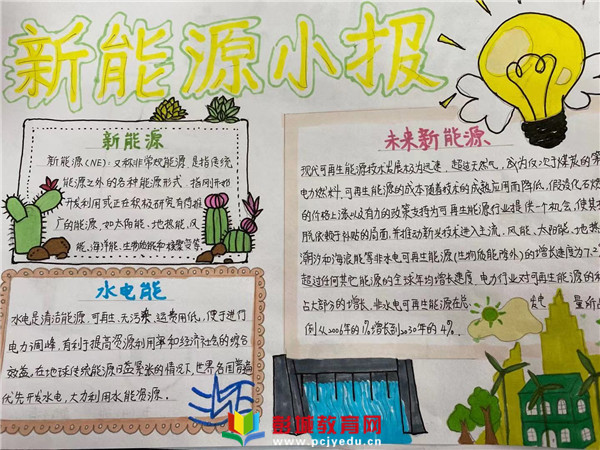 新能源小报
新能源
新能源(NE):又称非常规能源,是指传统
能源之外的各种能源形式,指刚开始
开发利用或正在积极研究有待推
广的能源,如太阳能、地热能、风
能、海洋能、生物质能和核聚变等。
水电能
水电是清洁能源,可再生、无污染、运费用低,便于进行
电力调峰,有利于提高资源利用率和经济社会的综合
效益。在地球传统能源日益紧张的情况下,世界各国普遍
优先开发水电,大力利用水能资源。
未来新能源
现代可再生能源技术发展极为迅速,超过天然气,成为仅次于煤炭的第
电力燃料,可再生能源的成本随着技术的成熟应用而降低,假设化石燃
的价格上涨以及有力的政策支持为可再生能源行业提供一个机会,使其
脱依赖于补贴的局面,并推动新兴技术进入主流,风能、太阳能、地热
潮汐和海浪能等非水电可再生能源(生物质能除外)的增长速度为7.2
超过任何其他能源的全球年均增长速度,电力行业对可再生能源的利
占大部分的增长。非水电可再生能源在总 发电 量所占
例从2006年的1%增长到2030年的4%。
彭城教育网
www.pcjyedu.cn